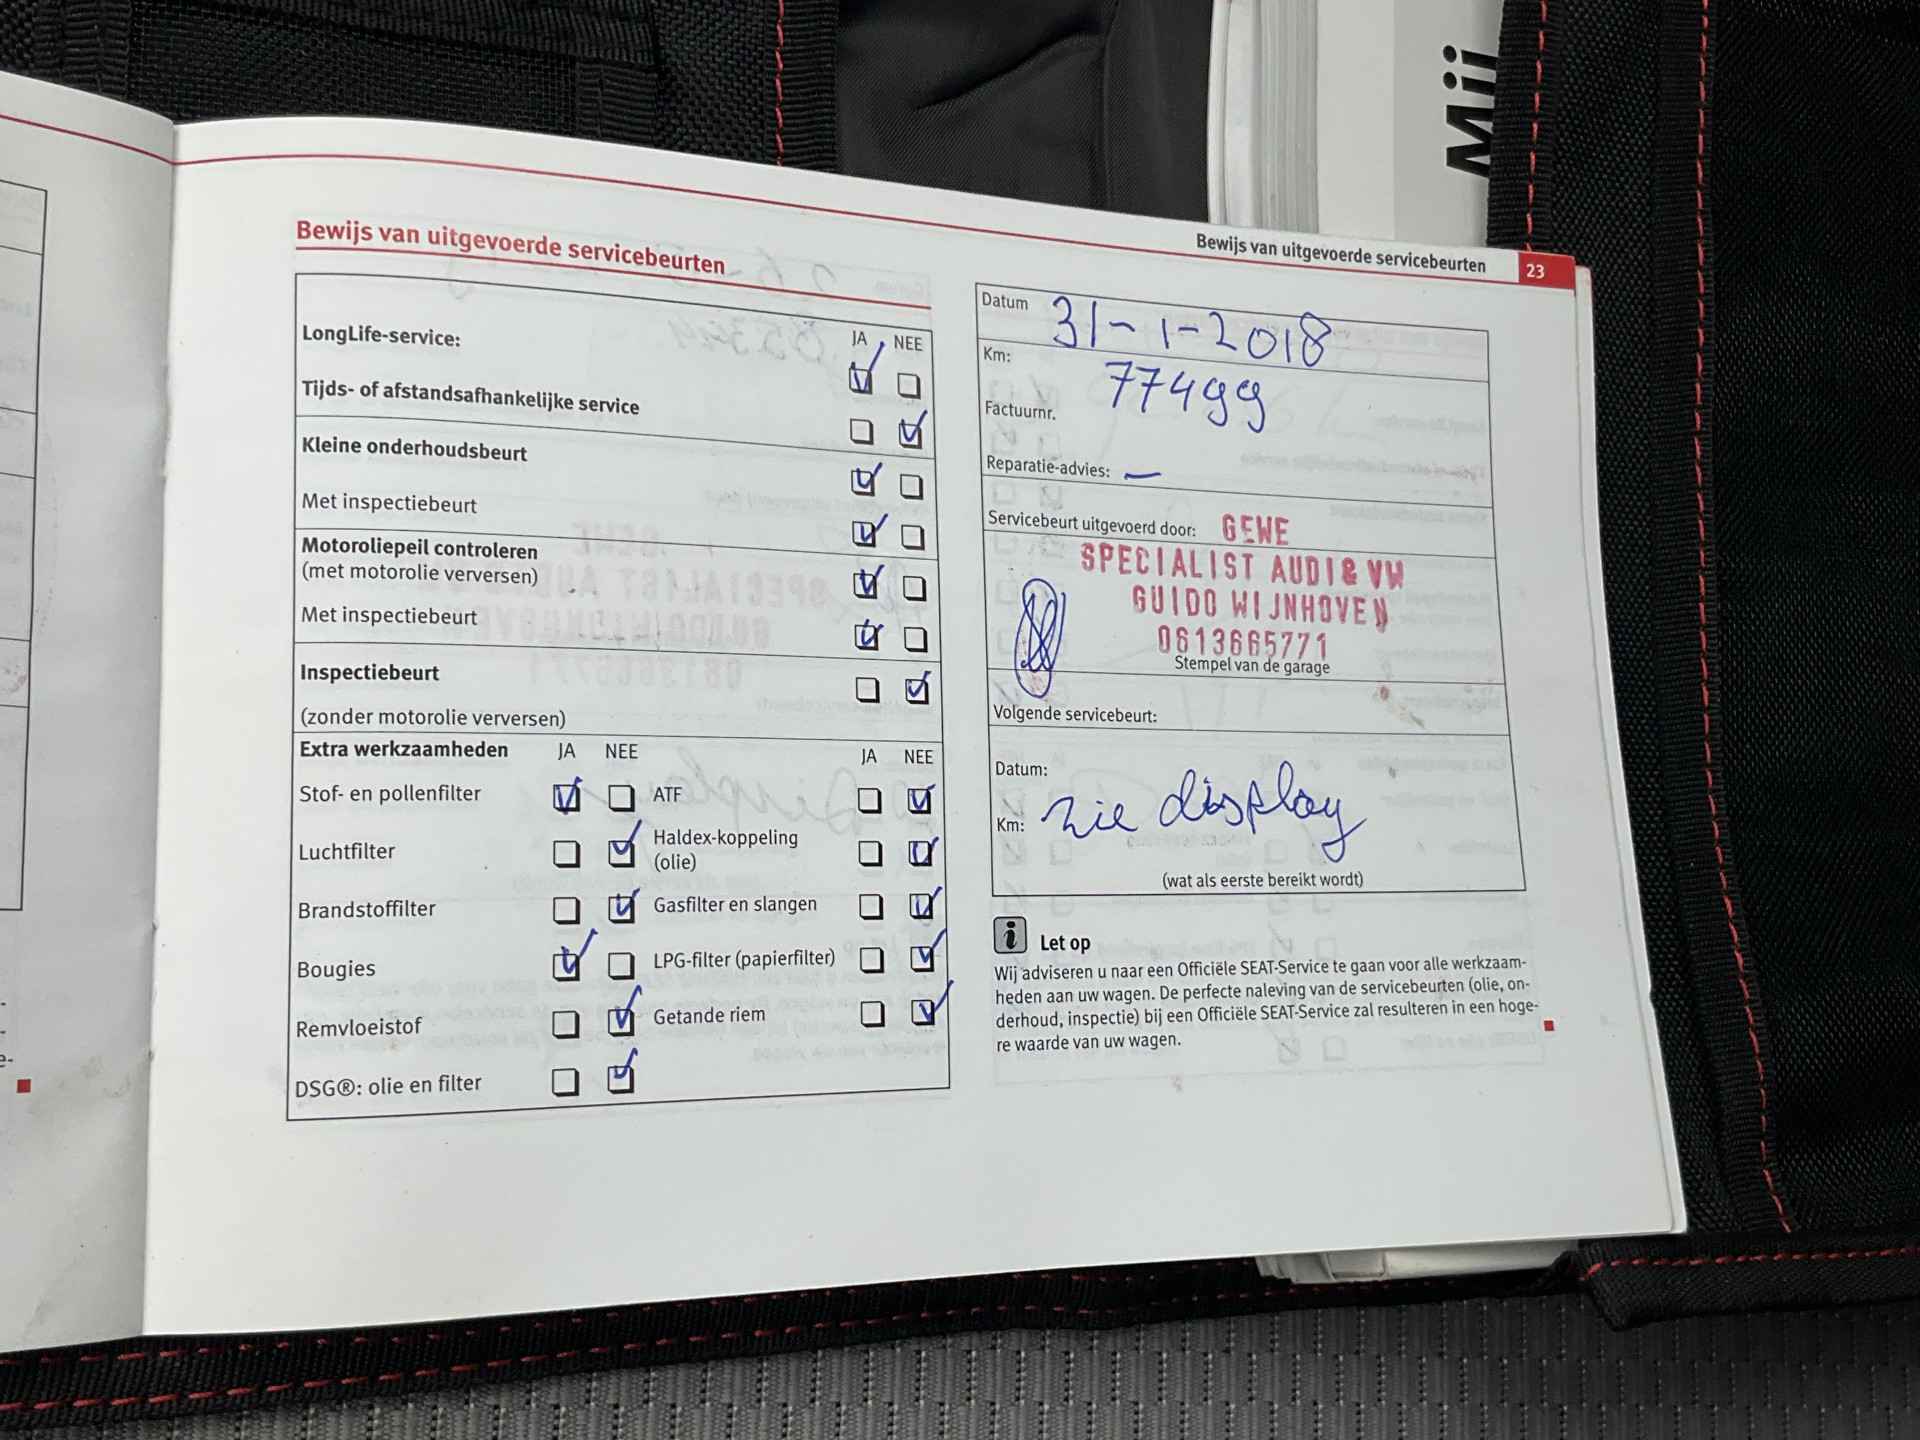 Mii
Bewijs van uitgevoerde servicebeurten
23
Bewijs van uitgevoerde servicebeurten
JA NEE
LongLife-service:
Tijds- of afstandsafhankelijke service
Kleine onderhoudsbeurt
Met inspectiebeurt
Motoroliepeil controleren
(met motorolie verversen)
Met inspectiebeurt
Inspectiebeurt
(zonder motorolie verversen)
Extra werkzaamheden JA NEE JA NEE
Stof- en pollenfilter ATF
Luchtfilter Haldex-koppeling
(olie)
Brandstoffilter Gasfilter en slangen
Bougies LPG-filter (papierfilter)
Remvloeistof Getande riem
DSG®: olie en filter
Datum 31-1-2018
Km: 77499
Factuurnr.
Reparatie-advies: —
Servicebeurt uitgevoerd door: GEWE
SPECIALIST AUDI & VW
GUIDO WIJNHOVEN
0613665771
Stempel van de garage
Volgende servicebeurt:
Datum:
Km: zie display
(wat als eerste bereikt wordt)
i Let op
Wij adviseren u naar een Officiële SEAT-Service te gaan voor alle werkzaam-
heden aan uw wagen. De perfecte naleving van de servicebeurten (olie, on-
derhoud, inspectie) bij een Officiële SEAT-Service zal resulteren in een hoge-
re waarde van uw wagen.